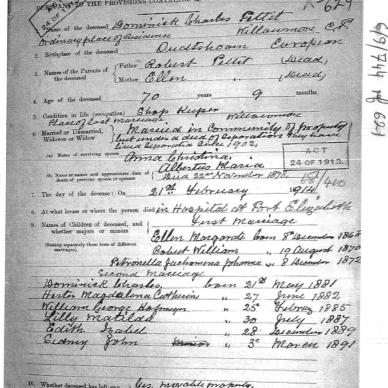 PURSUANT TO THE PROVISIONS
1. Name of the deceased Dominick Charles Pettit
Ordinary place of Residence Willowmore C.P.
2. Birthplace of the deceased Oudtshoorn European
3. Names of the Parents of the deceased
Father Robert Pettit Dead,
Mother Ellen " Dead,
4. Age of the deceased 70 years 9 months,
5. Condition in life (occupation) Shop Keeper
Place of last marriage. Willowmore
6. Married or Unmarried, Widower or Widow Married in Community of Property
but under a deed of Separation they have
lived separate since 1902,
(a) Name of surviving spouse Anna Christina,
ACT
24 OF 1913.
Albertus Maria
(b) Name or names and approximate date of death of previous spouse or spouses Died 22nd November 1878.
7. The day of the decease: On 21st February 1914
8. At what house or where the person died in Hospital at Port Elizabeth
9. Names of Children of deceased, and whether majors or minors First Marriage
Ellen Margaret born 8th December 1868
(Stating separately those born of different marriages)
Robert William " 19 August 1870
Petronella Jachomena Johanna " 8 December 1872
Second Marriage
Dominick Charles, born 21st May 1881
Hester Magdalena Catherina " 27 June 1882
William George Hofmeyr " 25 Febrary 1885
Lilly Matilda " 30 July 1887
Edith Isabel " 28 December 1889
Sidney John " 3rd March 1891
10. Whether deceased has left any Yes, movable property.